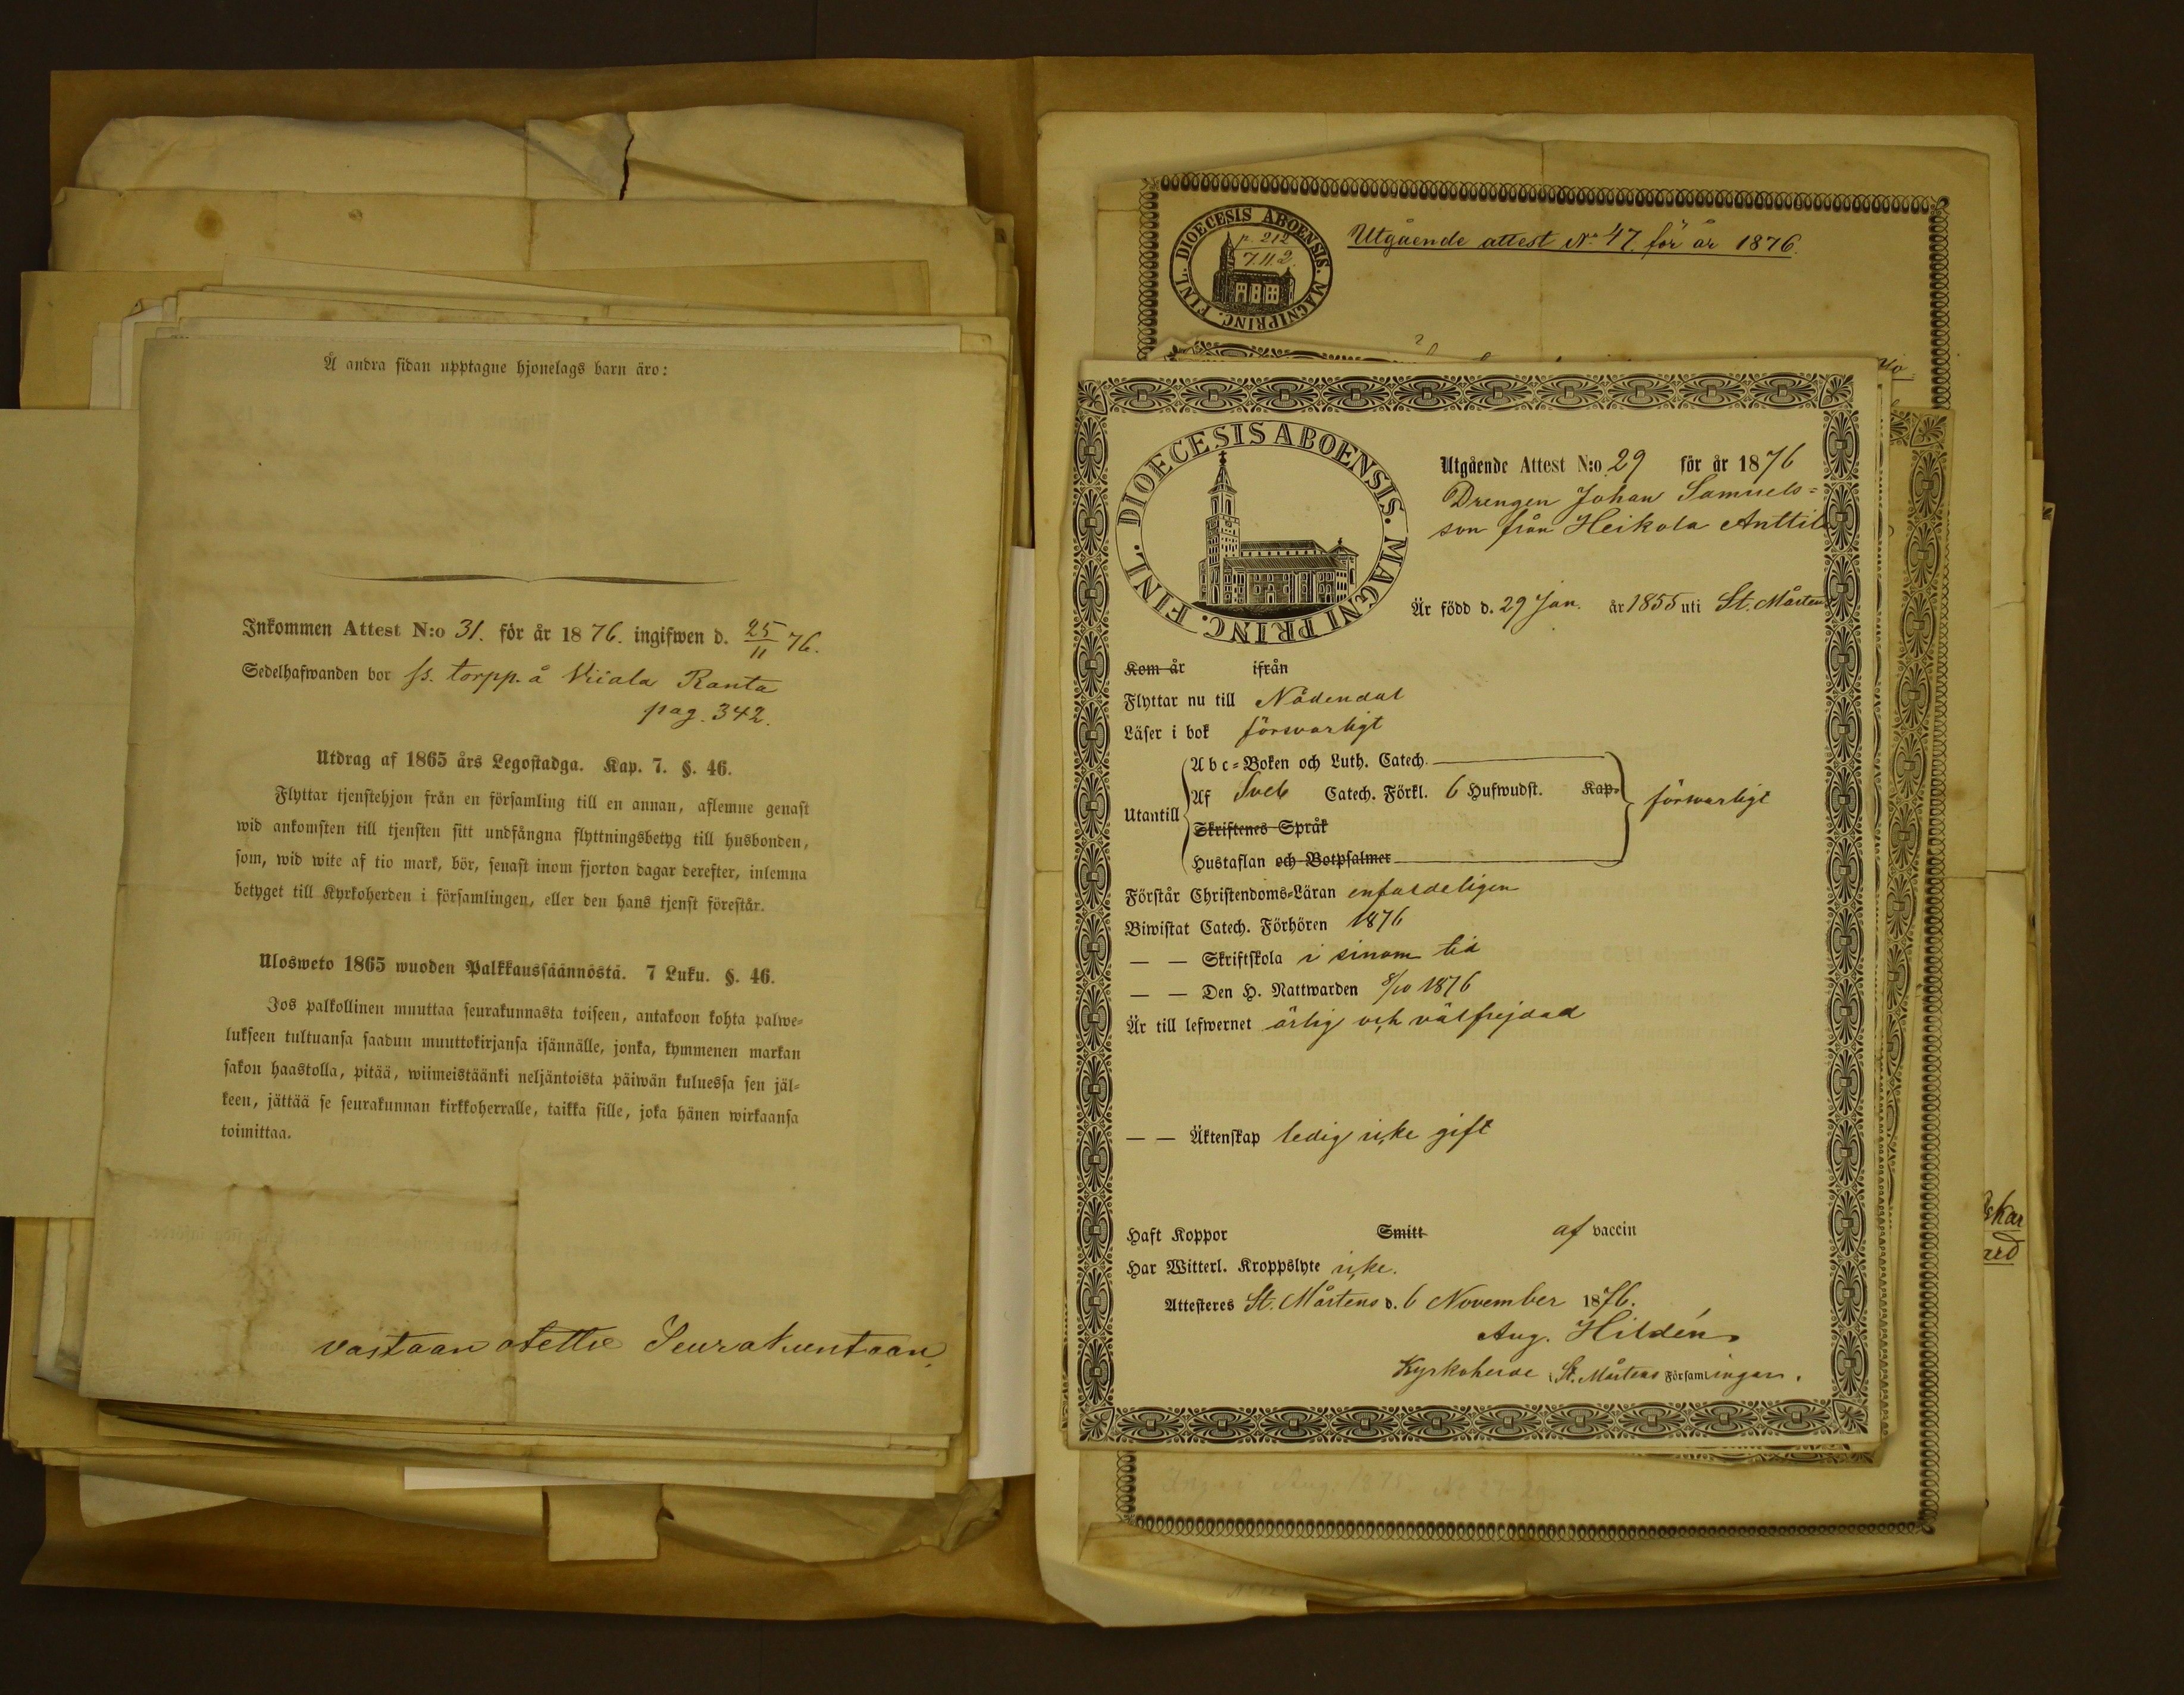 Å andra sidan upptagne hjonelags barn äro:
Inkommen Attest N:o 31. för år 1876. ingifwen d. 25/11 76.
Sedelhafwanden bor ss. torpp. å Viiala Ranta
pag. 342.
Utdrag af 1865 års Legostadga. Kap. 7. §. 46.
Flyttar tjenstehjon från en församling till en annan, aflemne genast
wid ankomsten till tjensten sitt undfångna flyttningsbetyg till husbonden,
som, wid wite af tio mark, bör, senast inom fjorton dagar derefter, inlemna
betyget till Kyrkoherden i församlingen, eller den hans tjenst förestår.
Ulosweto 1865 wuoden Palkkaussäännöstä. 7 Luku. §. 46.
Jos palkollinen muuttaa seurakunnasta toiseen, antakoon kohta palwe-
lukseen tultuansa saadun muuttokirjansa isännälle, jonka, kymmenen markan
sakon haastolla, pitää, wiimeistäänki neljäntoista päiwän kuluessa sen jäl-
keen, jättää se seurakunnan kirkkoherralle, taikka sille, joka hänen wirkaansa
toimittaa.
vastaan otettu Seurakuntaan
DIOECESIS ABOENSIS. MAGNI PRINC. FINL.
p. 212
7.11.2.
Utgående attest No 47. för år 1876.
DIOECESIS ABOENSIS. MAGNI PRINC. FINL.
Utgående Attest N:o 29 för år 1876
Drengen Johan Samuels=
son från Heikola Anttila
Är född d. 29 Jan. år 1855 uti St. Mårtens
Kom år ifrån
Flyttar nu till Nådendal
Läser i bok försvarligt
Abc=Boken och Luth. Catech.
Utantill Af Sveb Catech. Förkl. 6 Hufwudst. Kap. försvarligt
Skriftenes Språk
Hustaflan och Botpsalmer
Förstår Christendoms=Läran enfaldeligen
Biwistat Catech. Förhören 1876
— — Skriftskola i sinom tid
— — Den H. Nattwarden 8/10 1876
Är till lefwernet ärlig och välfrejdad
— — Äktenskap ledig icke gift
Haft Koppor Smitt af vaccin
Har Witterl. Kroppslyte icke.
Attesteres St. Mårtens d. 6 November 1876.
Aug. Hildén
Kyrkoherde i St. Mårtens Församlingar.